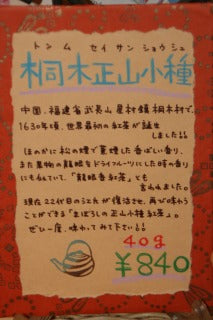 トンム セイサンショウシュ
桐木正山小種
中国、福建省 武夷山 星村鎮 桐木村で、
1630年頃、世界最初の紅茶が誕生
しました!!
ほのかに松の煙で薫煙した香ばしい香り、
また果物の龍眼をドライフルーツにした時の香り
にも似ていて、「龍眼香紅茶」とも
言われました。
現在 22代目の江氏が復活させ、再び味わう
ことができる「まぼろしの正山小種紅茶」。
ぜひ一度、味わってみて下さい!!
40g
¥840